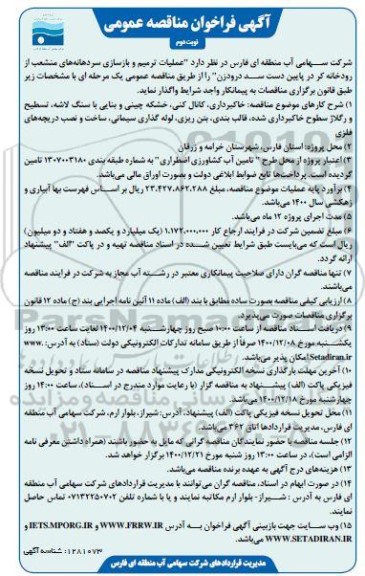 آگهی فراخوان مناقصه عمومی
نوبت دوم
شرکت سهامی آب منطقه ای فارس در نظر دارد "عملیات ترمیم و بازسازی سردهانه‌های منشعب از
رودخانه کر در پایین دست سد درودزن" را از طریق مناقصه عمومی یک مرحله ای با مشخصات زیر
طبق قانون برگزاری مناقصات به پیمانکار واجد شرایط واگذار نماید.
۱) شرح کارهای موضوع مناقصه: خاکبرداری، کانال کنی، خشکه چینی و بنایی با سنگ لاشه، تسطیح
و رگلاژ سطوح خاکبرداری شده، قالب بندی، بتن ریزی، لوله گذاری سیمانی، ساخت و نصب دریچه‌های
فلزی
۲) محل پروژه: استان فارس، شهرستان خرامه و زرقان
۳) اعتبار پروژه از محل طرح " تامین آب کشاورزی اضطراری" به شماره طبقه بندی ۱۳۰۷۰۰۳۱۸۰ تامین
گردیده است. پرداخت‌ها تابع ضوابط ابلاغی دولت و بصورت اوراق مالی می‌باشد.
۴) برآورد پایه عملیات موضوع مناقصه، مبلغ ۲۳،۴۲۷،۸۶۲،۲۸۸ ریال بر اساس فهرست بها آبیاری و
زهکشی سال ۱۴۰۰ می‌باشد.
۵) مدت اجرای پروژه ۱۲ ماه می‌باشد.
۶) مبلغ تضمین شرکت در فرایند ارجاع کار ۱،۱۷۲،۰۰۰،۰۰۰ (یک میلیارد و یکصد و هفتاد و دو میلیون)
ریال است که می‌بایست طبق شرایط تعیین شده در اسناد مناقصه تهیه و در پاکت "الف" پیشنهاد
ارائه گردد.
۷) تنها مناقصه گران دارای صلاحیت پیمانکاری معتبر در رشته آب مجاز به شرکت در فرایند مناقصه
می‌باشند.
۸) ارزیابی کیفی مناقصه بصورت ساده مطابق با بند (الف) ماده ۱۱ آئین نامه اجرایی بند (ج) ماده ۱۲ قانون
برگزاری مناقصات صورت می‌پذیرد.
۹) دریافت اسناد مناقصه از ساعت ۱۰:۰۰ صبح روز چهارشنبه ۱۴۰۰/۱۲/۰۴ لغایت ساعت ۱۳:۰۰ روز
یکشنبه مورخ ۱۴۰۰/۱۲/۰۸ صرفاً از طریق سامانه تدارکات الکترونیکی دولت (ستاد) به آدرس: www.
Setadiran.ir امکان پذیر می‌باشد.
۱۰) آخرین مهلت بارگذاری نسخه الکترونیکی مدارک پیشنهاد مناقصه در سامانه ستاد و تحویل نسخه
فیزیکی پاکت (الف) پیشنهاد به مناقصه گزار (با رعایت موارد مندرج در اسناد)، ساعت ۱۴:۰۰ روز
چهارشنبه مورخ ۱۴۰۰/۱۲/۱۸ می‌باشد.
۱۱) محل تحویل نسخه فیزیکی پاکت (الف) پیشنهاد، آدرس: شیراز، بلوار ارم، شرکت سهامی آب منطقه
ای فارس، مدیریت قراردادها اتاق ۳۶۲ می‌باشد.
۱۲) جلسه مناقصه با حضور نمایندگان مناقصه گرانی که مایل به حضور باشند (همراه داشتن معرفی نامه
الزامی است)، در ساعت ۱۳:۰۰ روز شنبه مورخ ۱۴۰۰/۱۲/۲۱ برگزار خواهد شد.
۱۳) هزینه‌های درج آگهی به عهده برنده مناقصه می‌باشد.
۱۴) در صورت ابهام در اسناد، مناقصه گران می‌توانند با مدیریت قراردادهای شرکت سهامی آب منطقه
ای فارس به آدرس : شیراز- بلوار ارم مکاتبه نمایند و یا با شماره تلفن ۰۷۱۳۲۲۵۰۷۰۲ تماس حاصل
نمایند.
۱۵) وب سایت جهت بازبینی آگهی فراخوان به آدرس WWW.FRRW.IR و IETS.MPORG.IR و
WWW.SETADIRAN.IR می‌باشد.
شناسه آگهی: ۱۲۸۱۰۷۳
مدیریت قراردادهای شرکت سهامی آب منطقه ای فارس